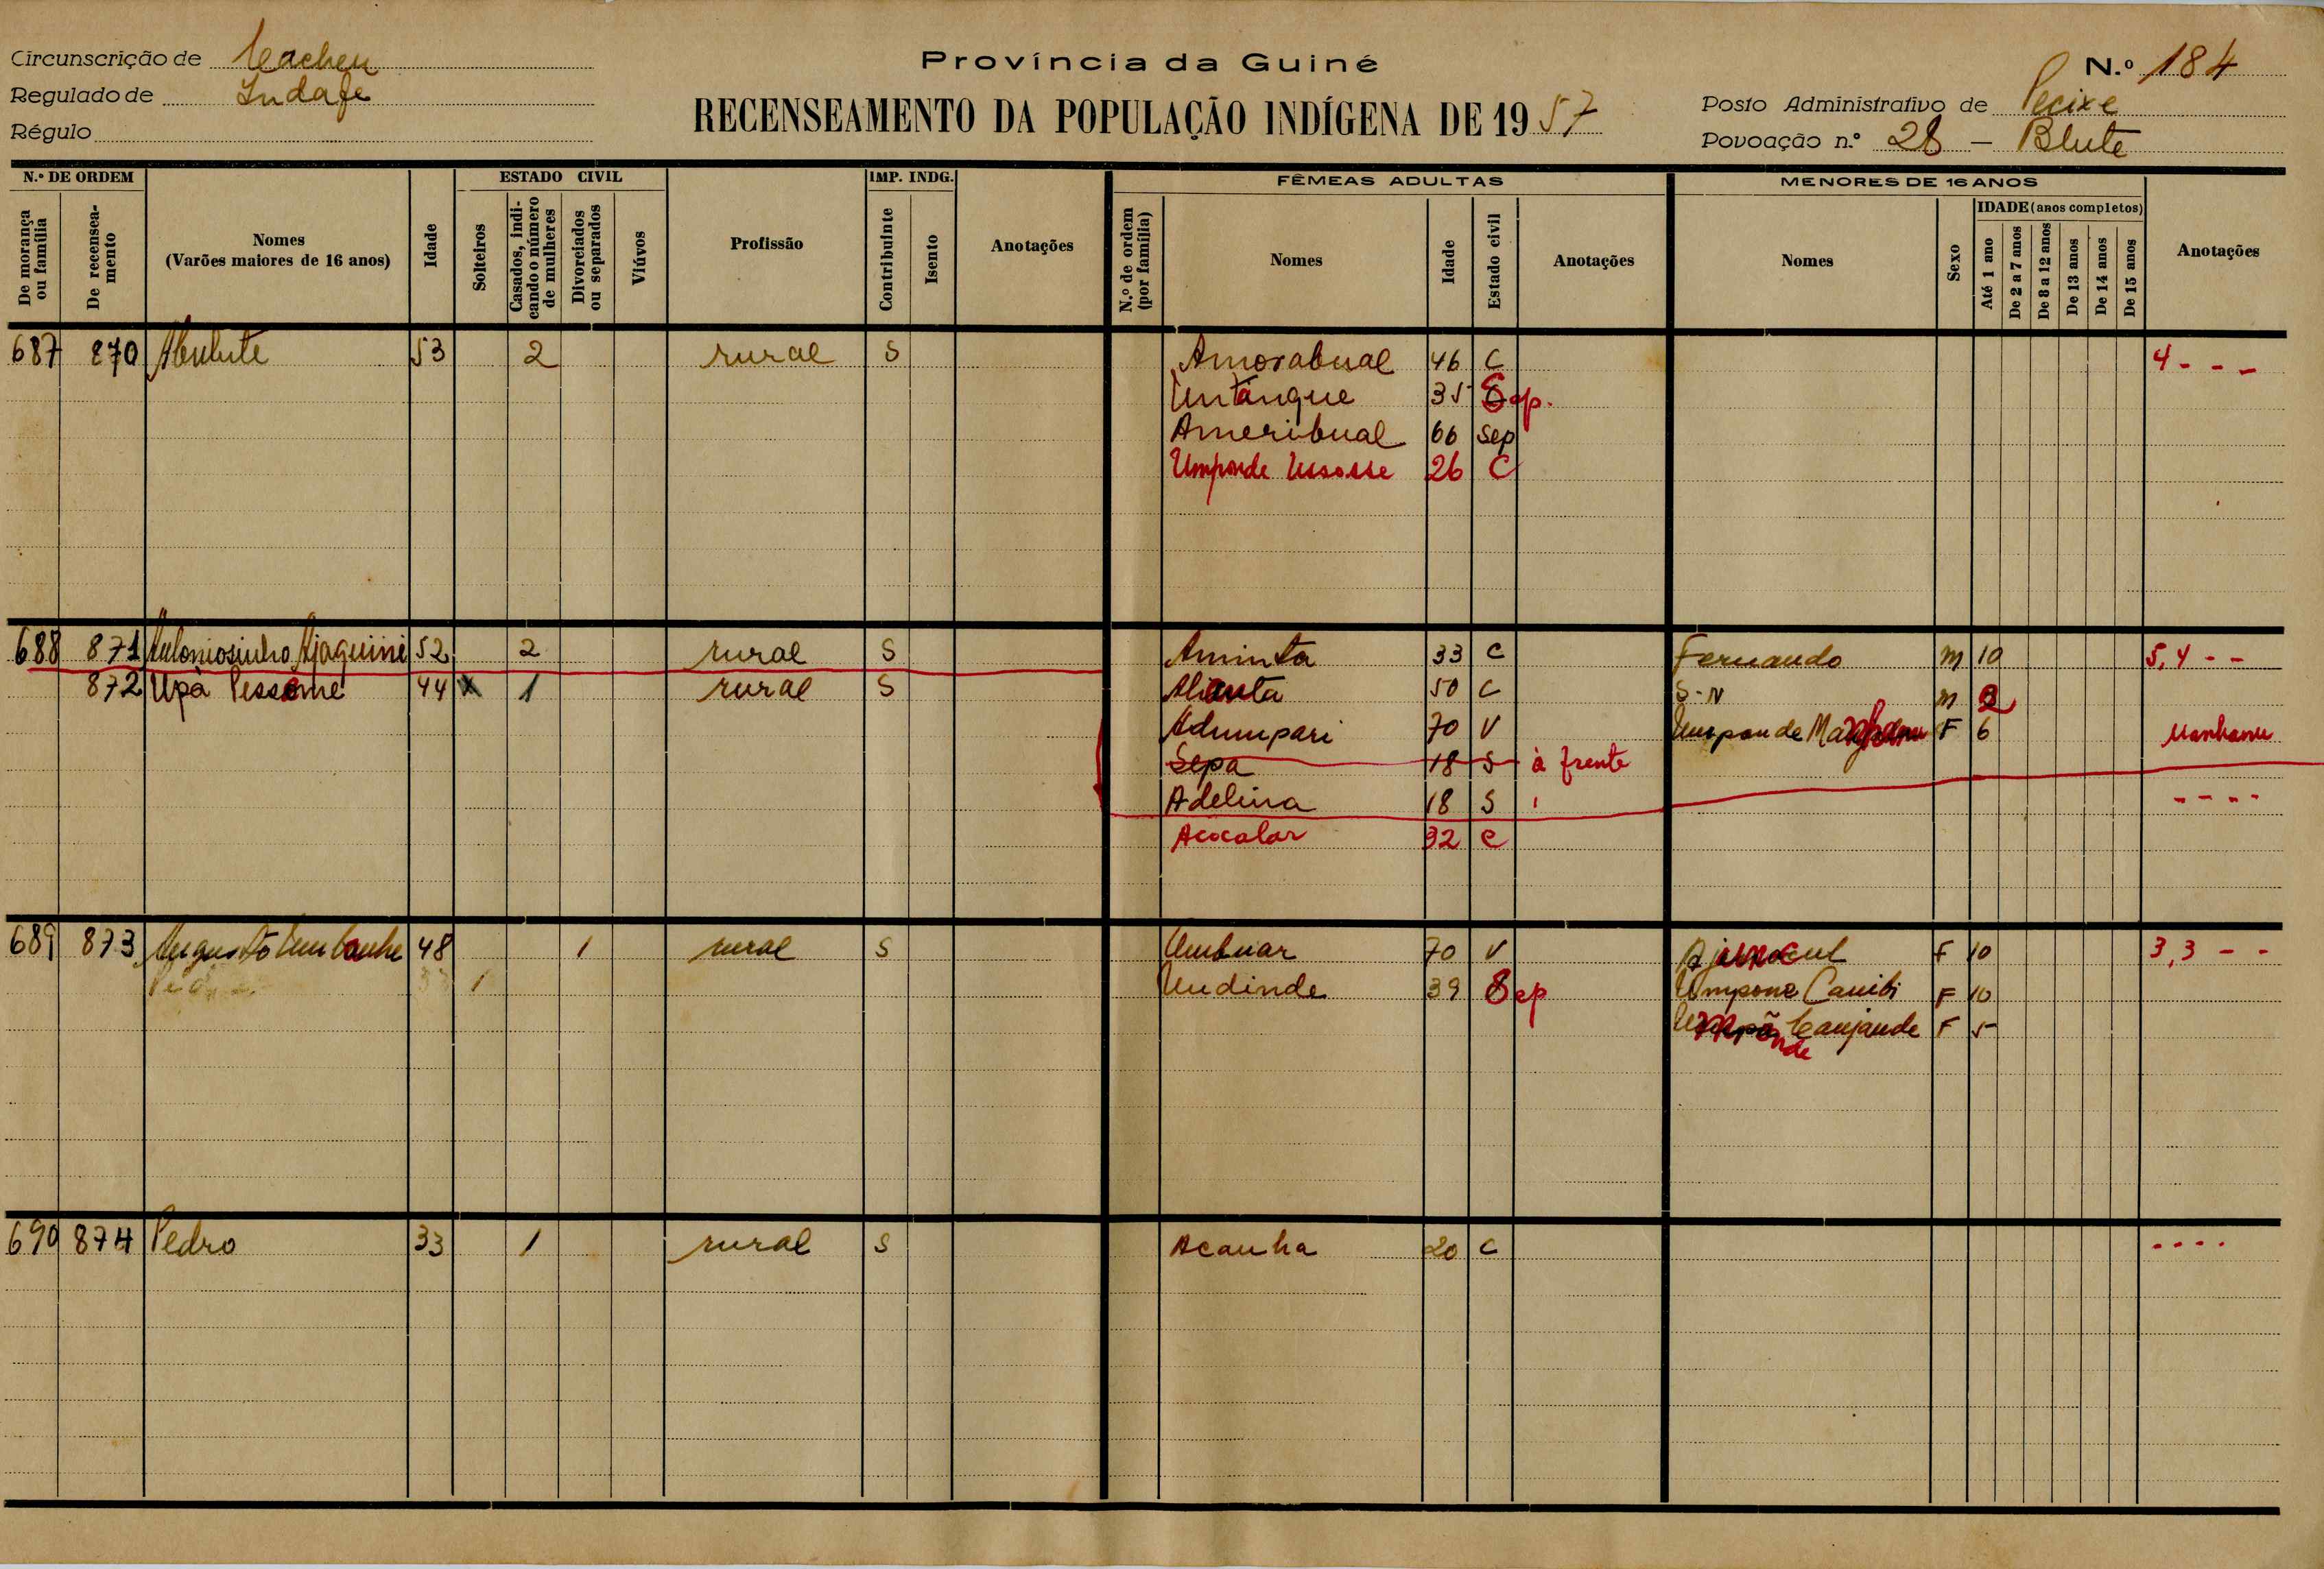 Circunscrição de Cacheu
Regulado de Indafe
Régulo
Província da Guiné
RECENSEAMENTO DA POPULAÇÃO INDÍGENA DE 1957
N.º 184
Posto Administrativo de Pecixe
Povoação n.º 28 - Blute
N.º DE ORDEM
De morança ou família
De recenseamento
Nomes
(Varões maiores de 16 anos)
Idade
ESTADO CIVIL
Solteiros
Casados, indicando o número de mulheres
Divorciados ou separados
Viúvos
Profissão
IMP. INDG.
Contribuinte
Isento
Anotações
FÊMEAS ADULTAS
N.º de ordem (por família)
Nomes
Idade
Estado civil
Anotações
MENORES DE 16 ANOS
Nomes
Sexo
IDADE (anos completos)
Até 1 ano
De 2 a 7 anos
De 8 a 12 anos
De 13 anos
De 14 anos
De 15 anos
Anotações
687 870 Abulute 53 2 rural S Amorabual 46 C 4 - - -
Untangue 35 Sep.
Ameribual 66 Sep
Umponde Ussosse 26 C
688 871 Antoniosinho Ajaquini 52 2 rural S Aminta 33 C Fernando M 10 5,4 - -
872 Upà Pessame 44 x 1 rural S 50 C S-N M 2
Adumpari 70 V Umponde F 6 Manhanu
Sepa 18 S à frente
Adelina 18 S - - - -
Acocalar 32 C
689 873 Augusto 48 1 rural S Umbuar 70 V F 10 3,3 - -
33 1 Undinde 39 Sep Umpone Canibi F 10
Canjande F 5
690 874 Pedro 33 1 rural S Acanha 20 C - - - -